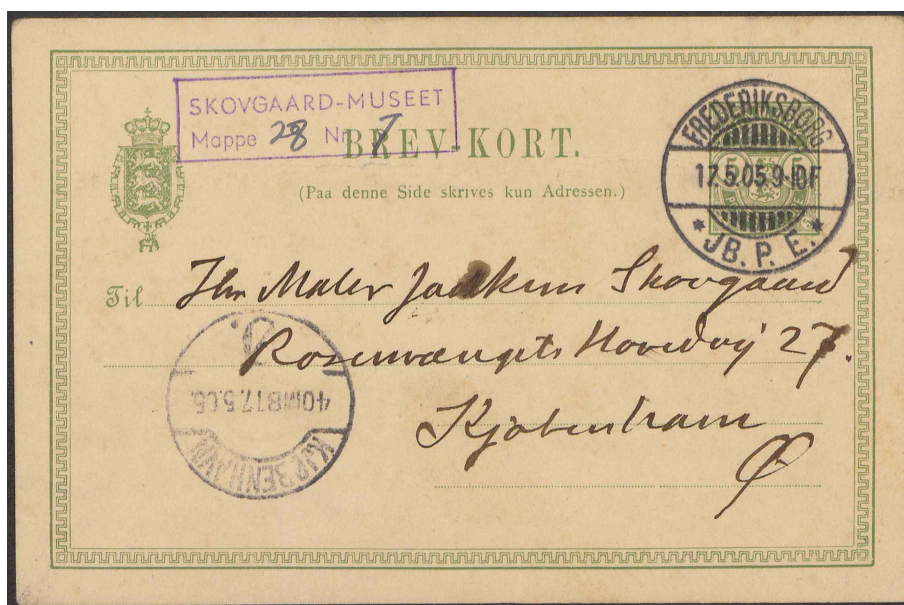 SKOVGAARD-MUSEET
Mappe 28 Nr. 7
BREV-KORT.
(Paa denne Side skrives kun Adressen.)
FREDERIKSBORG
17.5.05.9-10F
JB. P. E.
5 5
Til Hr. Maler Joakim Skovgaard
Rosenvængets Hovedvej 27.
Kjøbenhavn
Ø
KJØBENHAVN
40MB 17.5.05.